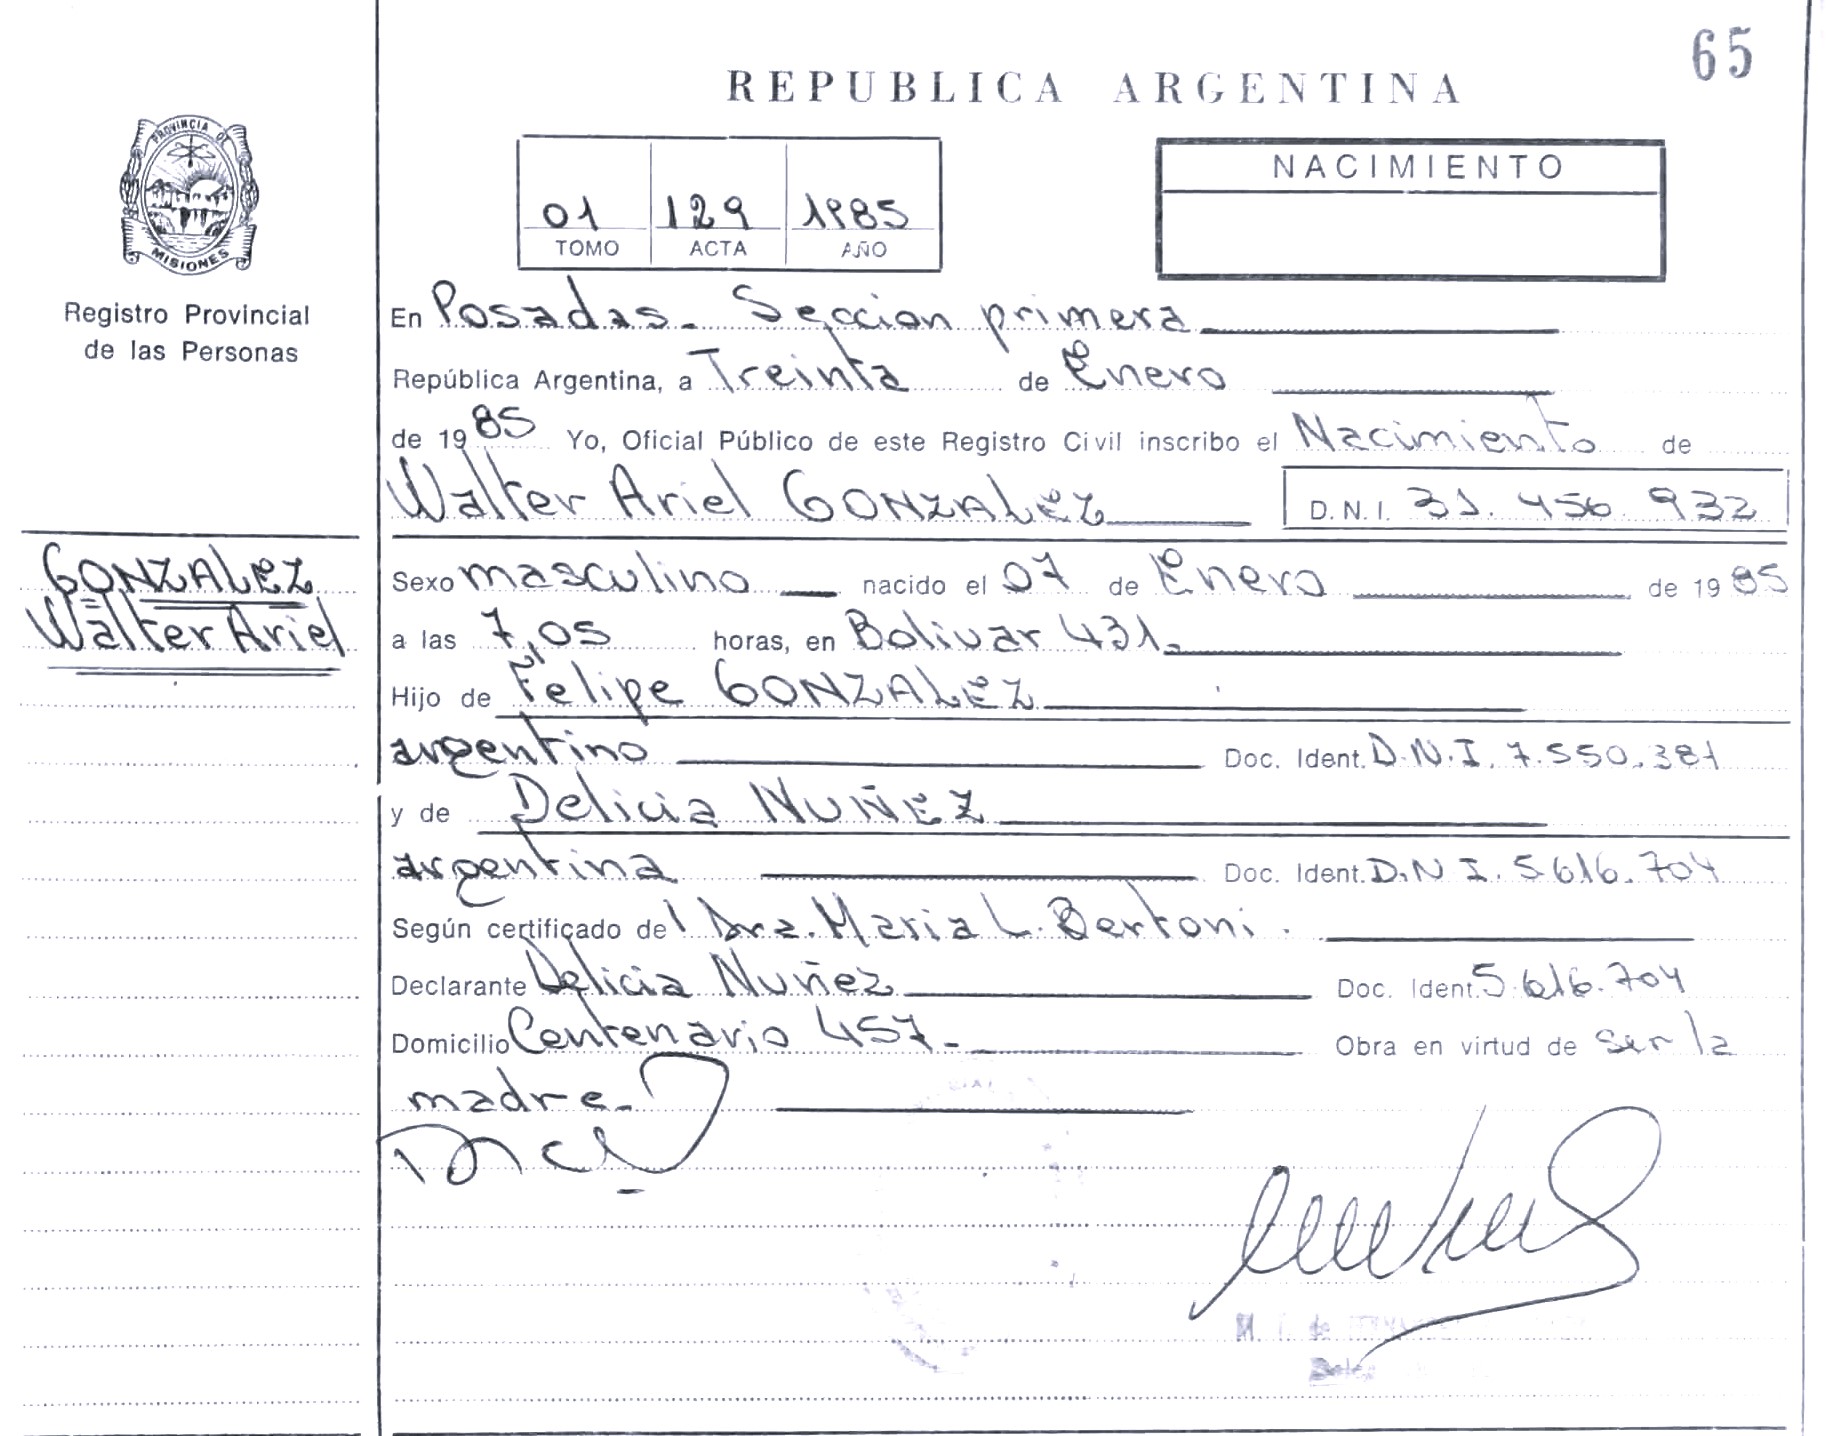 65
REPUBLICA ARGENTINA
PROVINCIA DE
MISIONES
Registro Provincial
de las Personas
01 129 1985
TOMO ACTA AÑO
NACIMIENTO
En Posadas. Seccion primera
República Argentina, a Treinta de Enero
de 1985 Yo, Oficial Público de este Registro Civil inscribo el Nacimiento de
Walter Ariel GONZALEZ D.N.I. 31.456.932
GONZALEZ
Walter Ariel
Sexo masculino nacido el 07 de Enero de 1985
a las 7,05 horas, en Bolivar 431.
Hijo de Felipe GONZALEZ
argentino Doc. Ident. D.N.I. 7.550.381
y de Delicia NUÑEZ
argentina Doc. Ident. D.N I. 5 616.704
Según certificado del Dra. Maria L. Bertoni.
Declarante Delicia Nuñez Doc. Ident. 5.616.704
Domicilio Centenario 457.- Obra en virtud de ser la
madre.